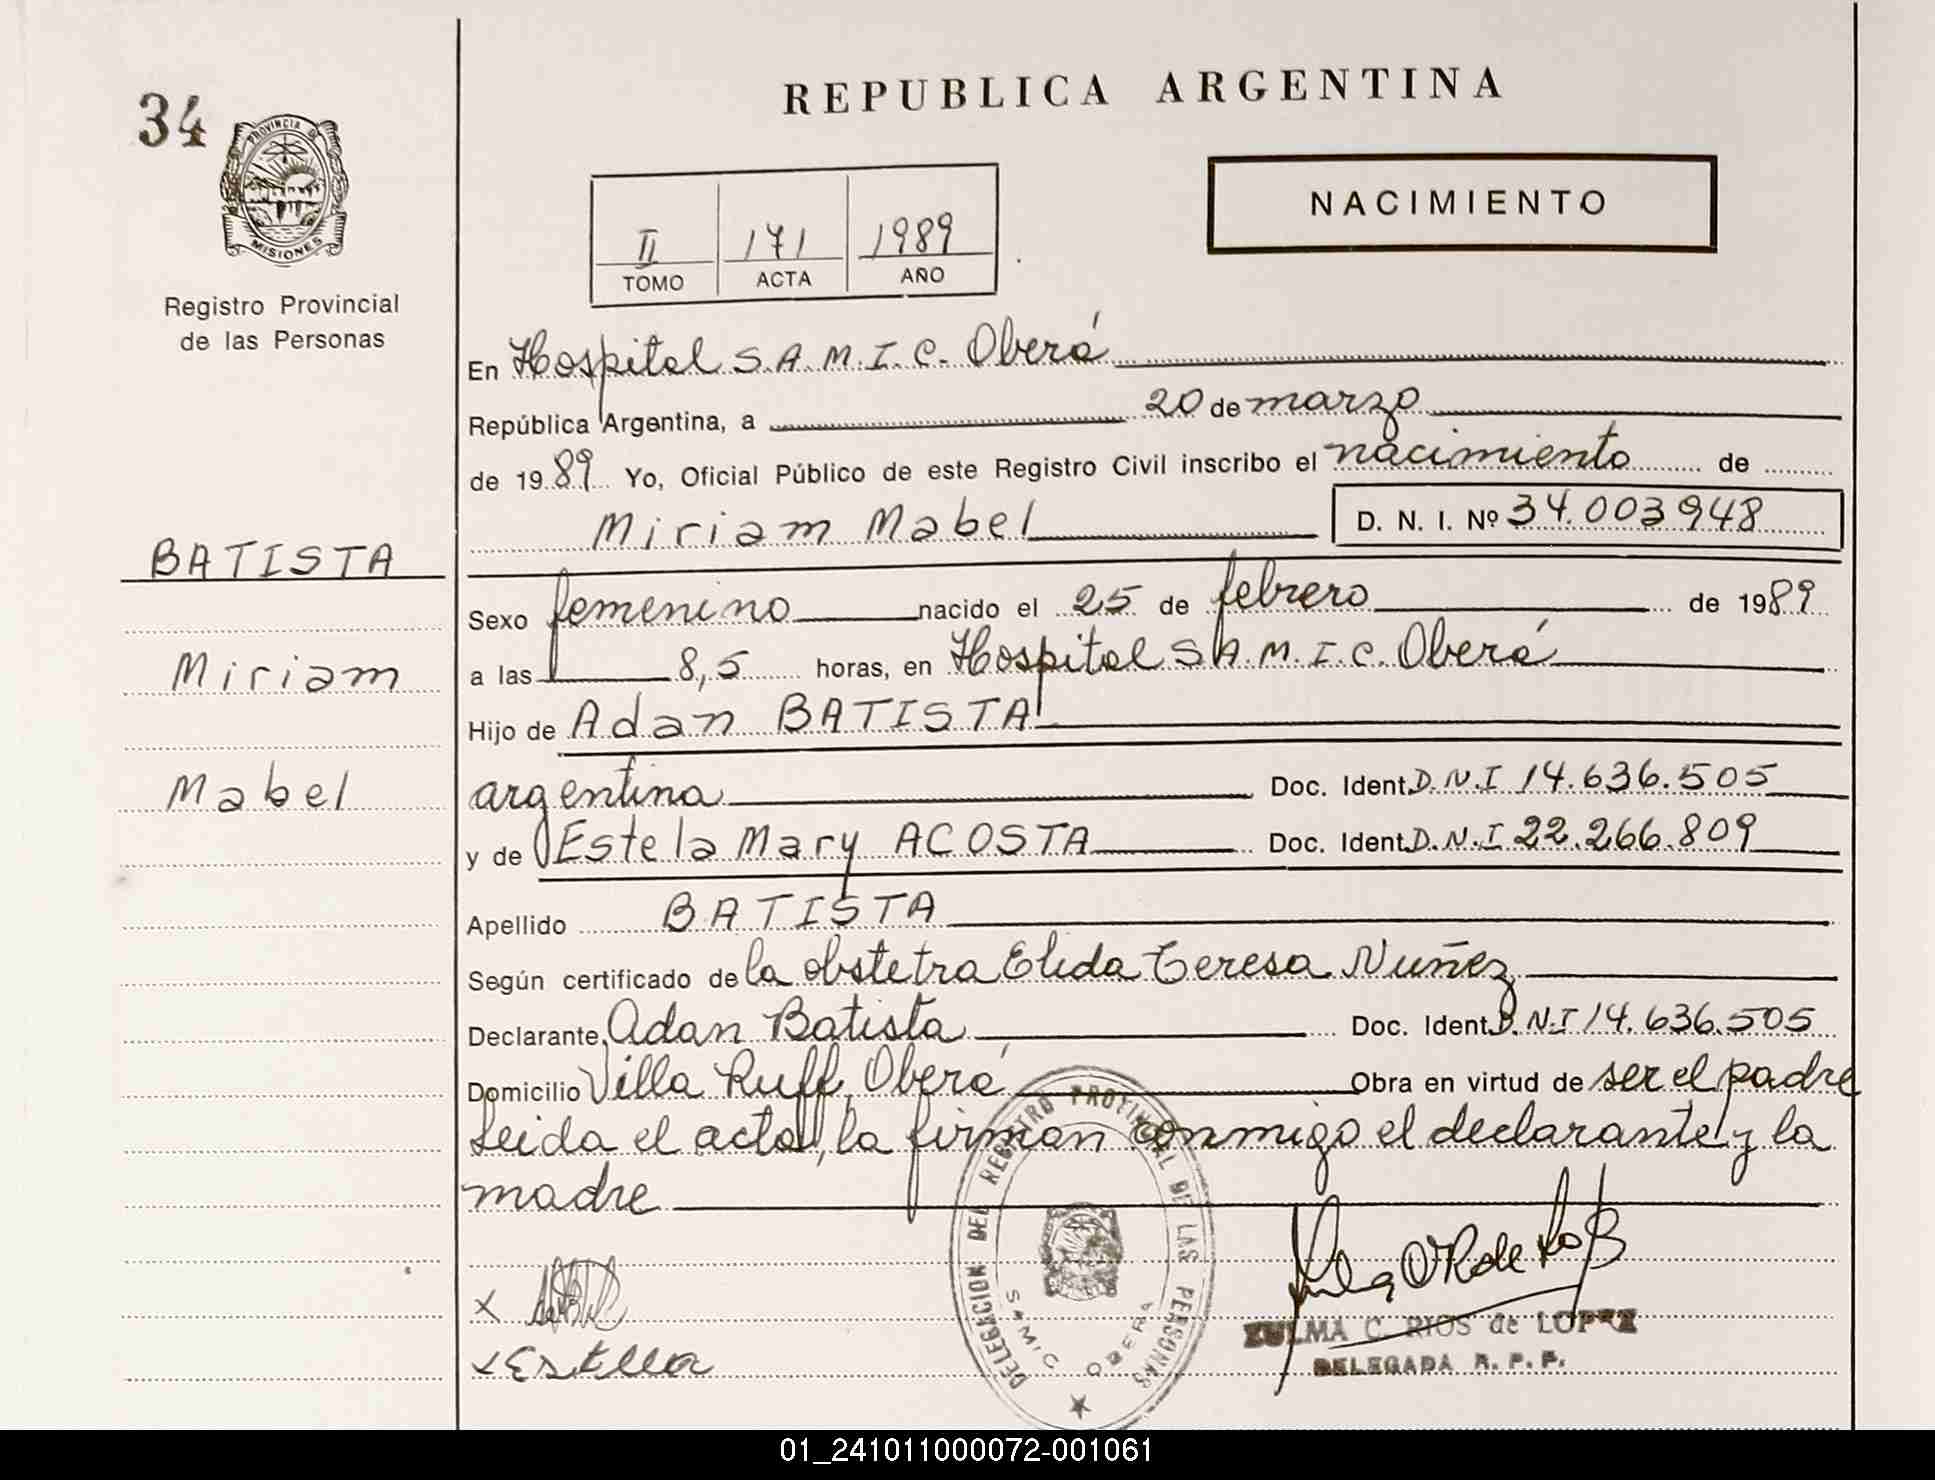 34
PROVINCIA D
MISIONES
Registro Provincial
de las Personas
BATISTA
Miriam
Mabel
REPUBLICA ARGENTINA
II 171 1989
TOMO ACTA AÑO
NACIMIENTO
En Hospital S.A.M.I.C. Oberá
República Argentina, a 20 de marzo
de 1989 Yo, Oficial Público de este Registro Civil inscribo el nacimiento de
Miriam Mabel D. N. I. Nº 34.003948
Sexo femenino nacido el 25 de febrero de 1989
a las 8,5 horas, en Hospital S.A.M.I.C. Oberá
Hijo de Adan BATISTA
argentina Doc. Ident. D.N.I 14.636.505
y de Estela Mary ACOSTA Doc. Ident. D.N.I 22.266.809
Apellido BATISTA
Según certificado de la obstetra Elida Teresa Nuñez
Declarante Adan Batista Doc. Ident. D.N.I 14.636.505
Domicilio Villa Ruff, Oberá Obra en virtud de ser el padre
Leida el acta, la firman conmigo el declarante y la
madre
DELEGACION DEL REGISTRO PROVINCIAL DE LAS PERSONAS
SAMIC OBERA
X
x Estela
ZULMA C. RIOS de LOPEZ
DELEGADA R. P. P.
01_241011000072-001061